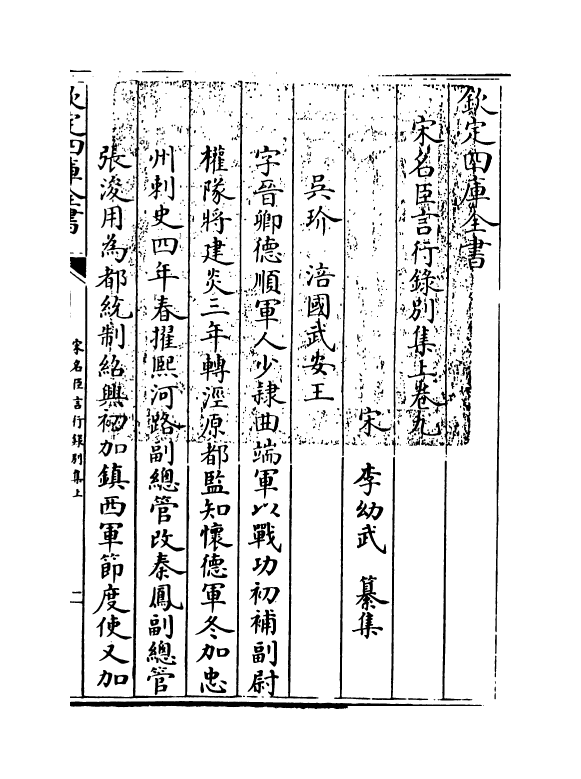 欽定四庫全書
宋名臣言行錄別集上卷九
宋 李幼武 纂集
吳玠 涪國武安王
字晉卿德順軍人少隷曲端軍以戰功初補副尉
權隊將建炎三年轉涇原都監知懷德軍冬加忠
州刺史四年春擢熙河路副總管改秦鳳副總管
張浚用為都統制紹興初加鎮西軍節度使又加
欽定四庫全書
宋名臣言行錄別集上
二